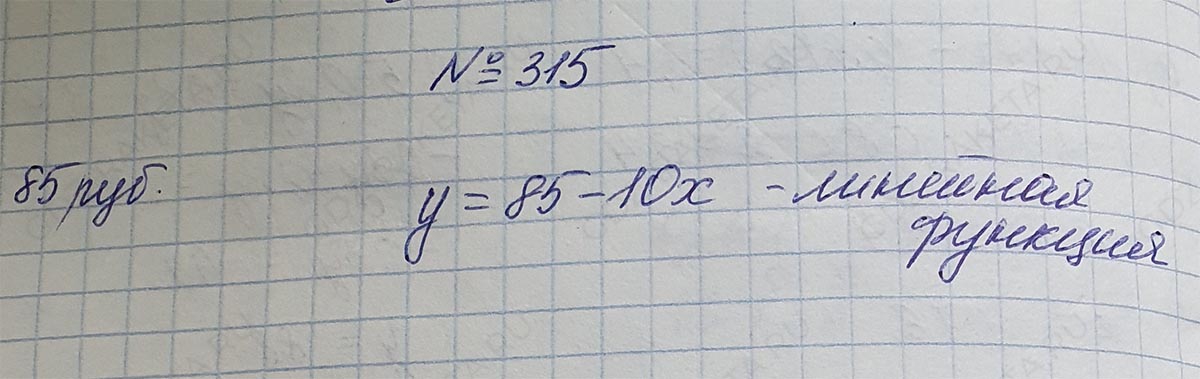 № 315
85 руб. y = 85 - 10x - линейная
функция